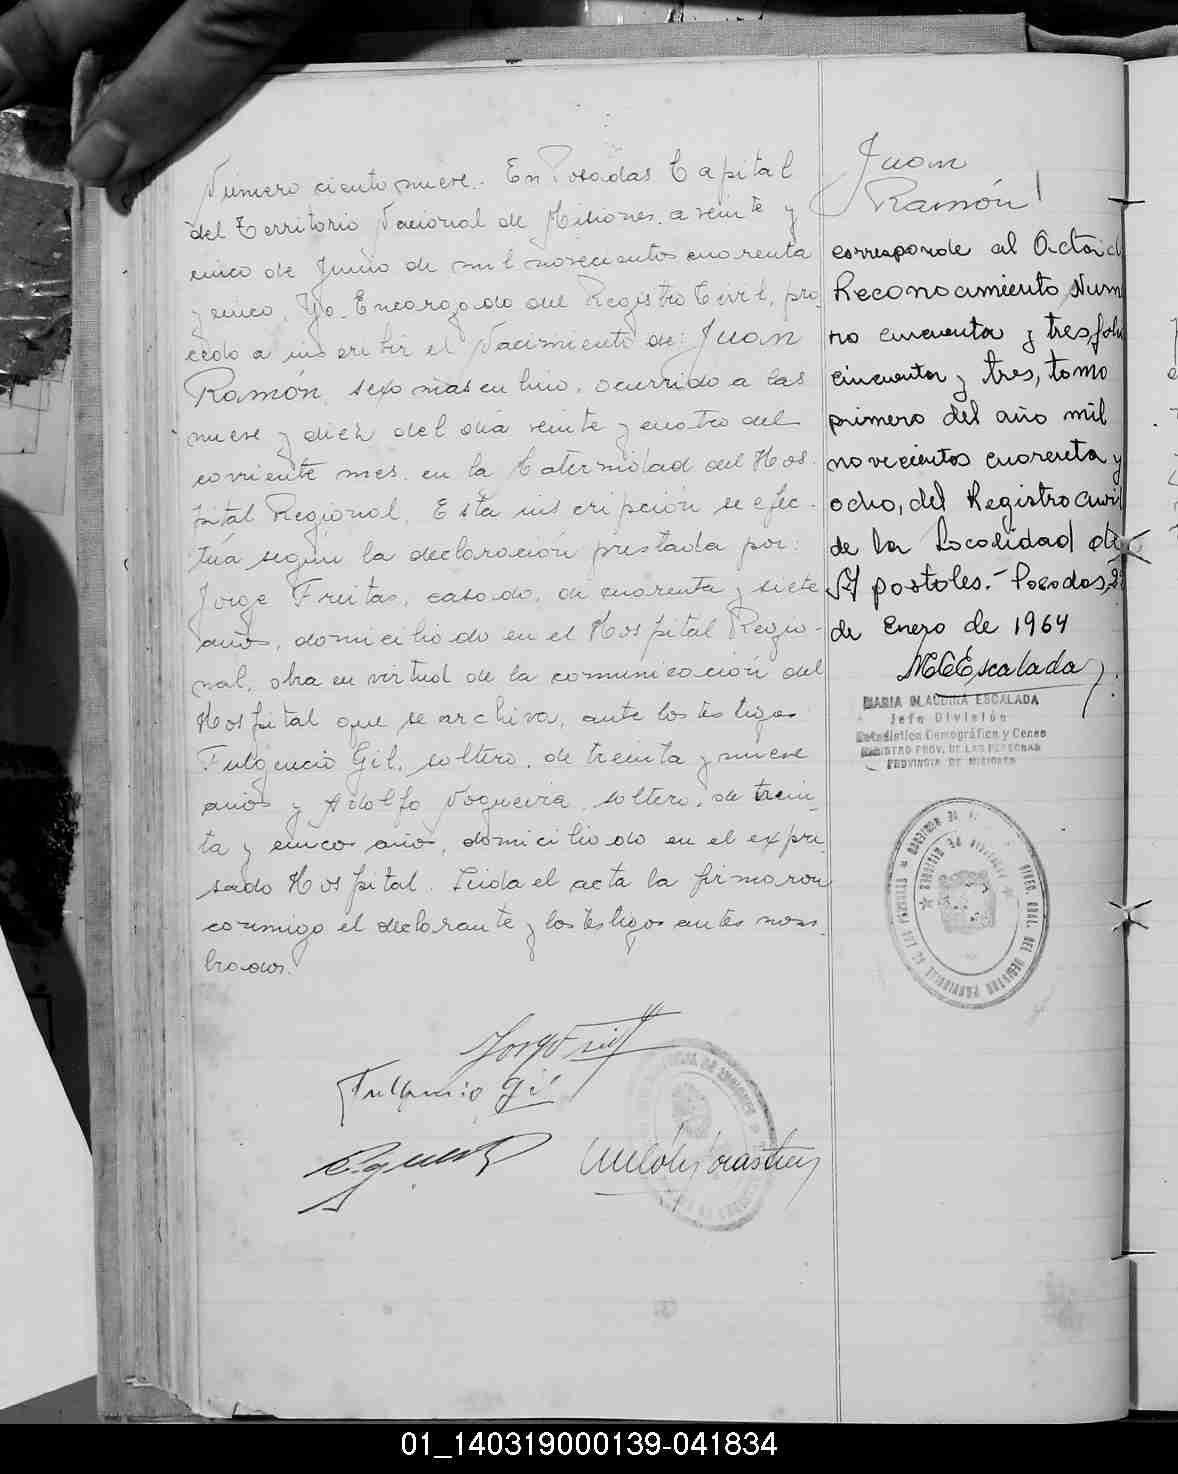 Número ciento nueve. En Posadas Capital
del Territorio Nacional de Misiones, a veinte y
cinco de Junio de mil novecientos cuarenta
y cinco, Yo, Encargado del Registro Civil, pro
cedo a inscribir el Nacimiento de: Juan
Ramón, sexo masculino, ocurrido a las
nueve y diez del día veinte y cuatro del
corriente mes, en la Maternidad del Hos
pital Regional. Esta inscripción se efec-
túa según la declaración prestada por:
Jorge Freitas, casado, de cuarenta y siete
años, domiciliado en el Hospital Regio-
nal, obra en virtud de la comunicación del
Hospital que se archiva, ante los testigos
Fulgencio Gil, soltero, de treinta y nueve
años y Adolfo Nogueira, soltero, de trein-
ta y cinco años, domiciliado en el expre
sado Hospital. Leída el acta la firmaron
conmigo el declarante y los testigos antes nom
brados.
Fulgencio Gil
Juan
Ramón
corresponde al Acta d
Reconocimiento Núm
ro cincuenta y tres, foli
cincuenta y tres, tomo
primero del año mil
novecientos cuarenta y
ocho, del Registro Civil
de la Localidad de
Apostoles.- Posadas,
de Enero de 1964
MCEscalada
MARIA CLAUDINA ESCALADA
Jefe División
Estadística Demográfica y Censo
REGISTRO PROV. DE LAS PERSONAS
PROVINCIA DE MISIONES
DIREC. GRAL. DEL REGISTRO PROVINCIAL DE LAS PERSONAS
01_140319000139-041834